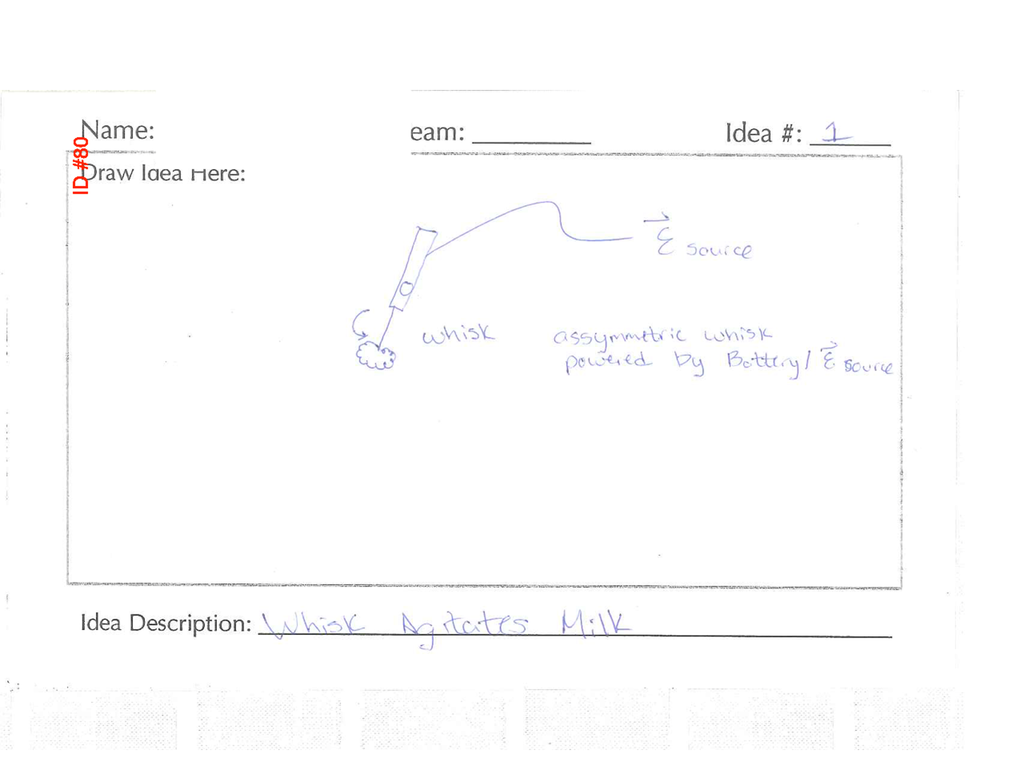 Name: eam: Idea #: 1
ID #80
Draw Idea Here:
→
ℰ source
whisk
assymmetric whisk
powered by Battery/ ℰ source
Idea Description: Whisk Agitates Milk